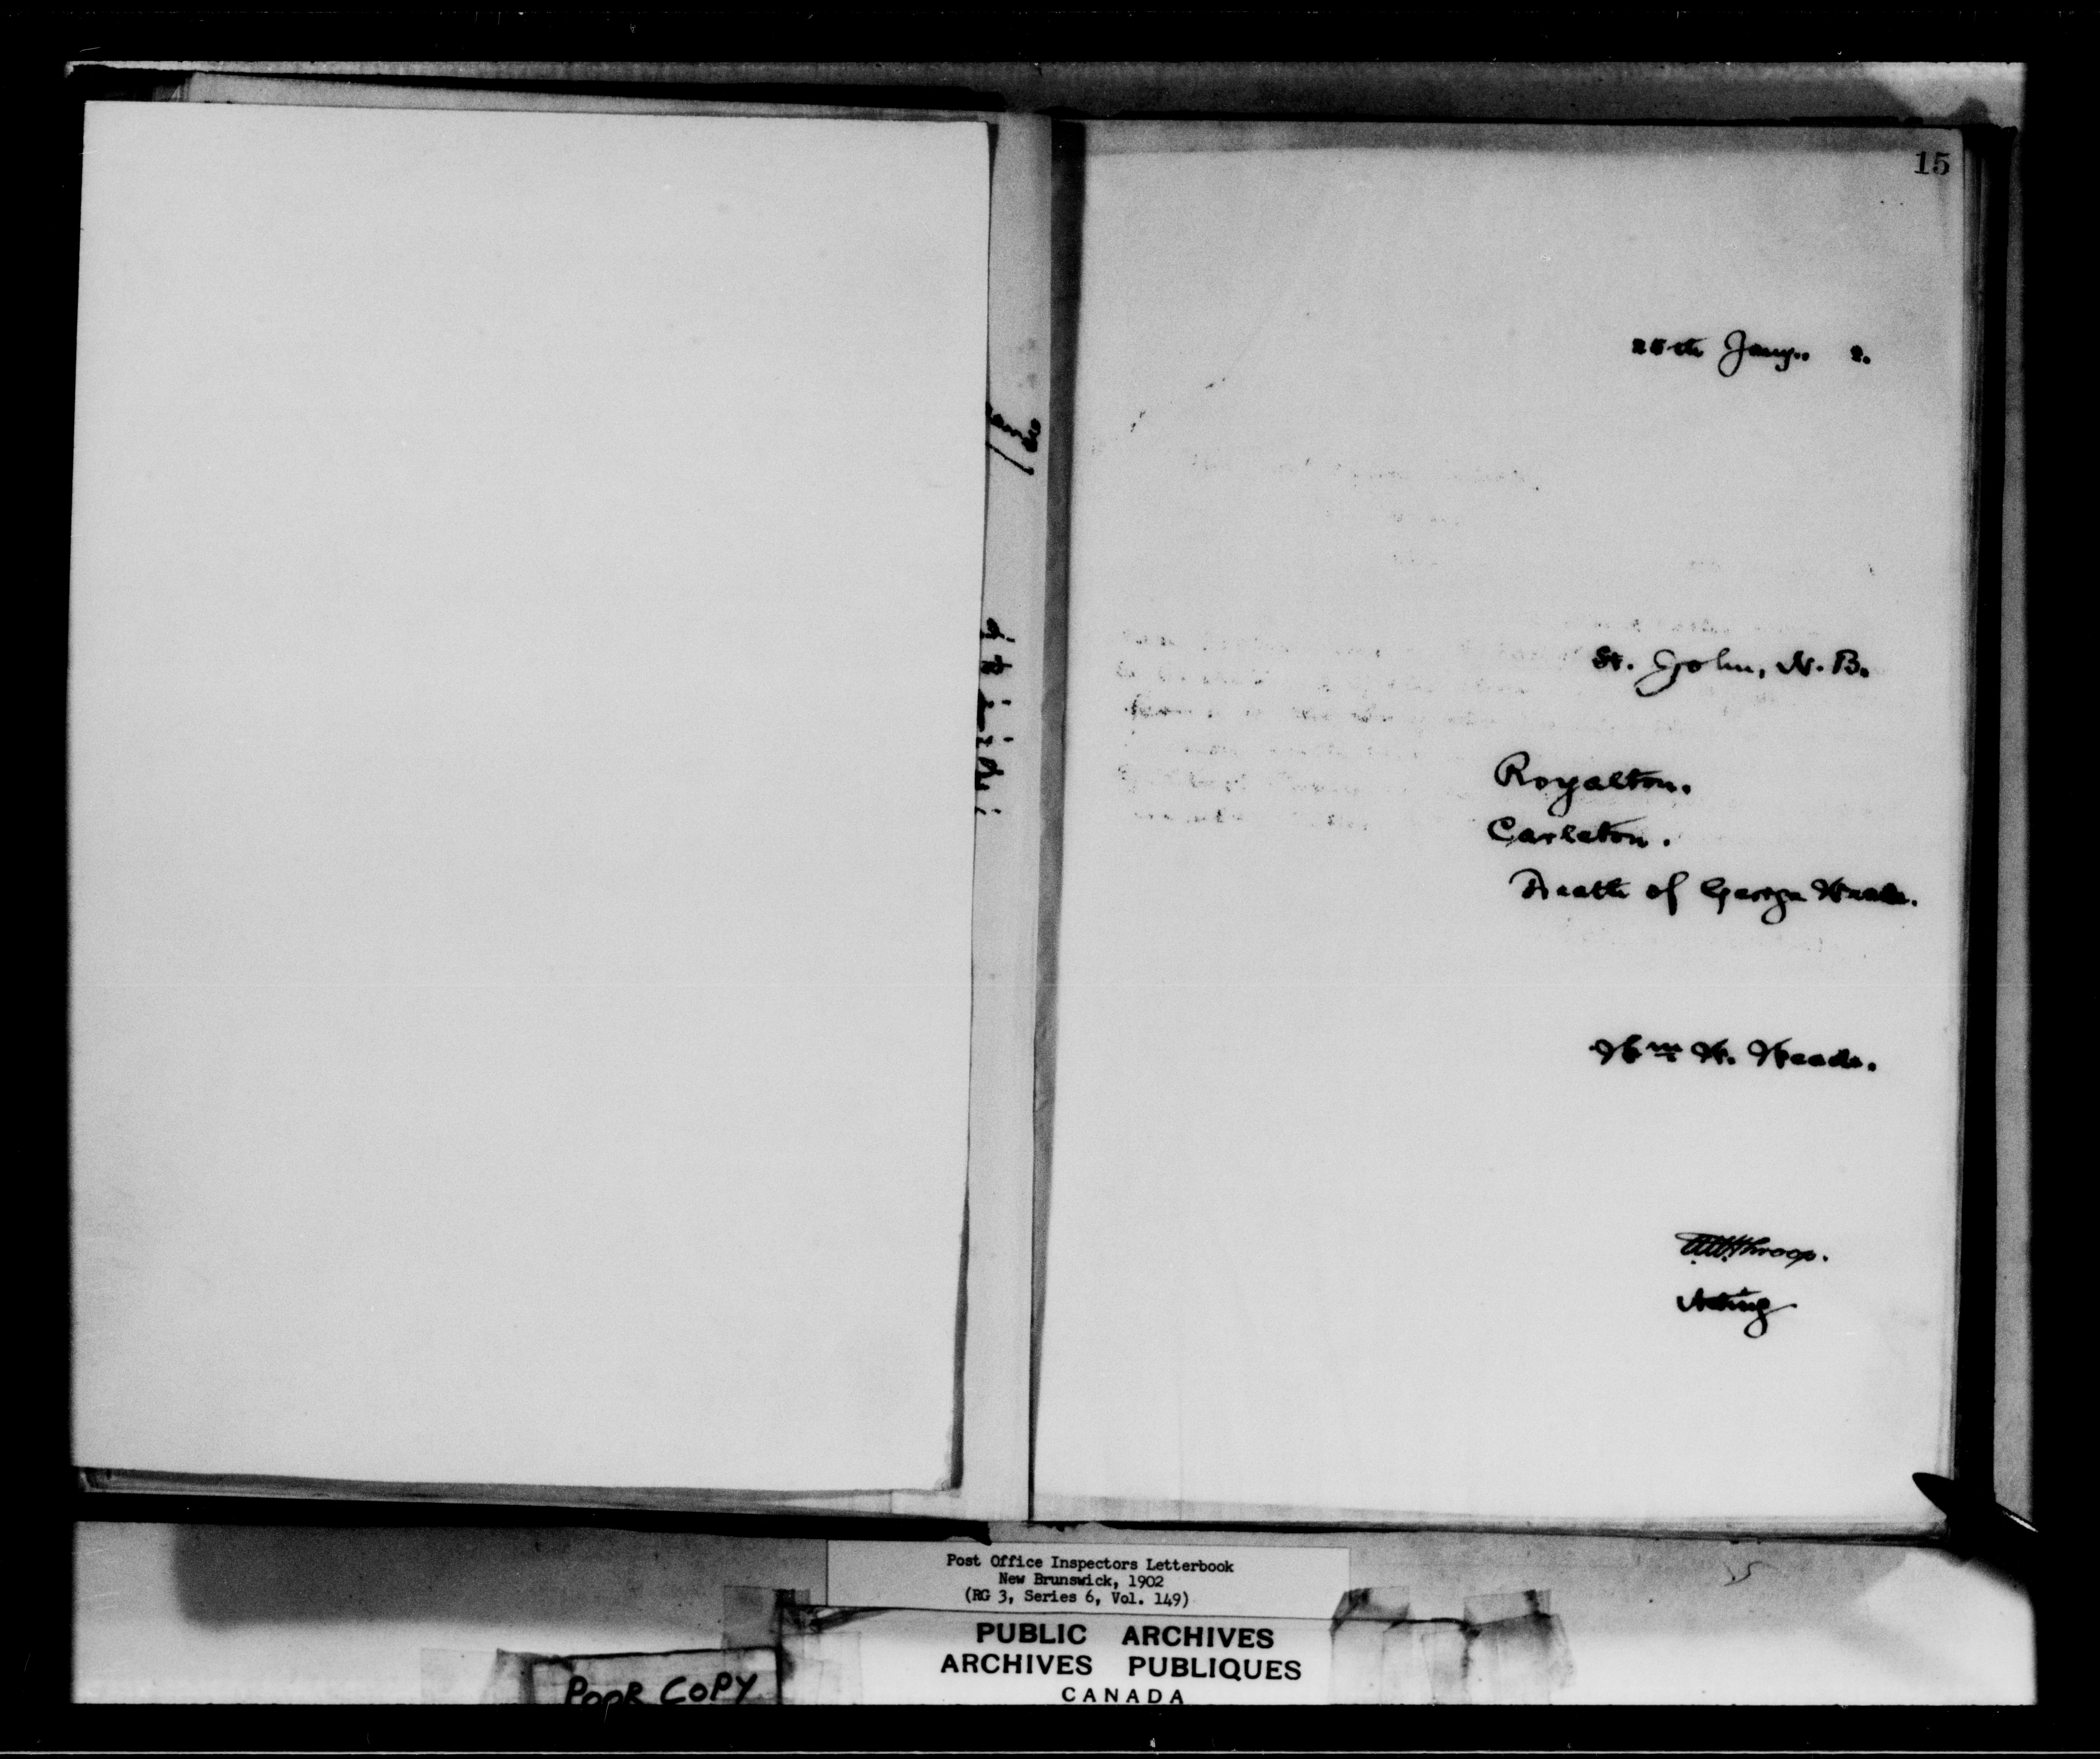 15
25th Jany.. 2.
St. John, N. B.
Royalton.
Carleton.
Death of George
Wm W.
Throop.
Acting
Post Office Inspectors Letterbook
New Brunswick, 1902
(RG 3, Series 6, Vol. 149)
PUBLIC ARCHIVES
ARCHIVES PUBLIQUES
CANADA
POOR COPY